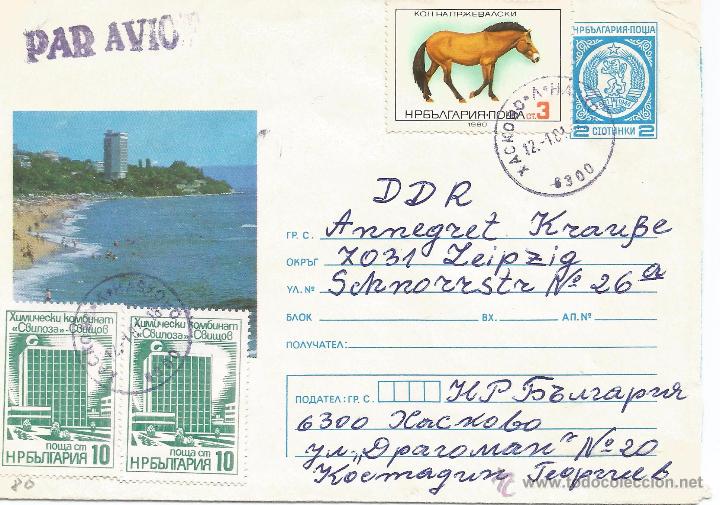 PAR AVION
КОН НА ПРЖЕВАЛСКИ
НРБЪЛГАРИЯ·ПОЩА СТ.3
1980
НРБЪЛГАРИЯ·ПОЩА
2 СТОТИНКИ 2
ХАСКОВО
12.-1.
6300
DDR
ГР. С. Annegret Krauße
ОКРЪГ 7031 Leipzig
УЛ. № Schnorrstr № 26a
БЛОК ВХ. АП. №
ПОЛУЧАТЕЛ:
Химически комбинат
«Свилоза»-Свищов
поща ст
НРБЪЛГАРИЯ 10
Химически комбинат
«Свилоза»-Свищов
поща ст
НРБЪЛГАРИЯ 10
ПОДАТЕЛ: ГР. С. НР България
6300 Хасково
ул. „Драгоман" № 20
Костадин Георгиев
80
todocoleccion.net